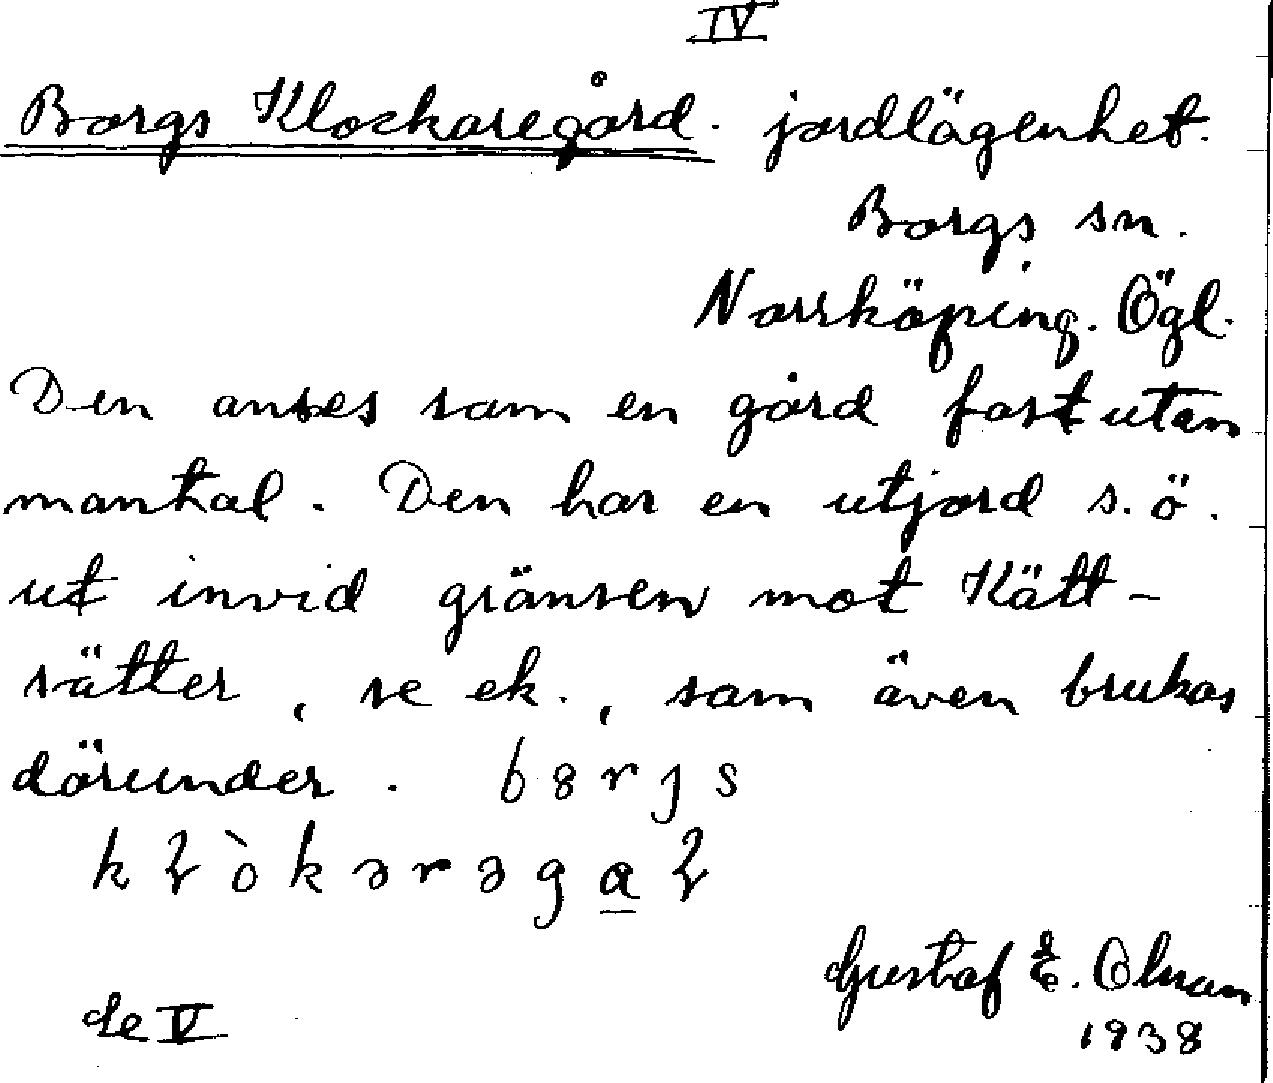 IV
Borgs Klockaregård. jordlägenhet.
Borgs sn.
Norrköping. Ögl.
Den anses som en gård fast utan
mantal. Den har en utjord s.ö.
ut invid gränsen mot Kätt-
sätter, se ek., som även brukas
därunder. b8rjs
kⱡòkərəgaⱡ
Gustaf E. Olsson
1938
Se V